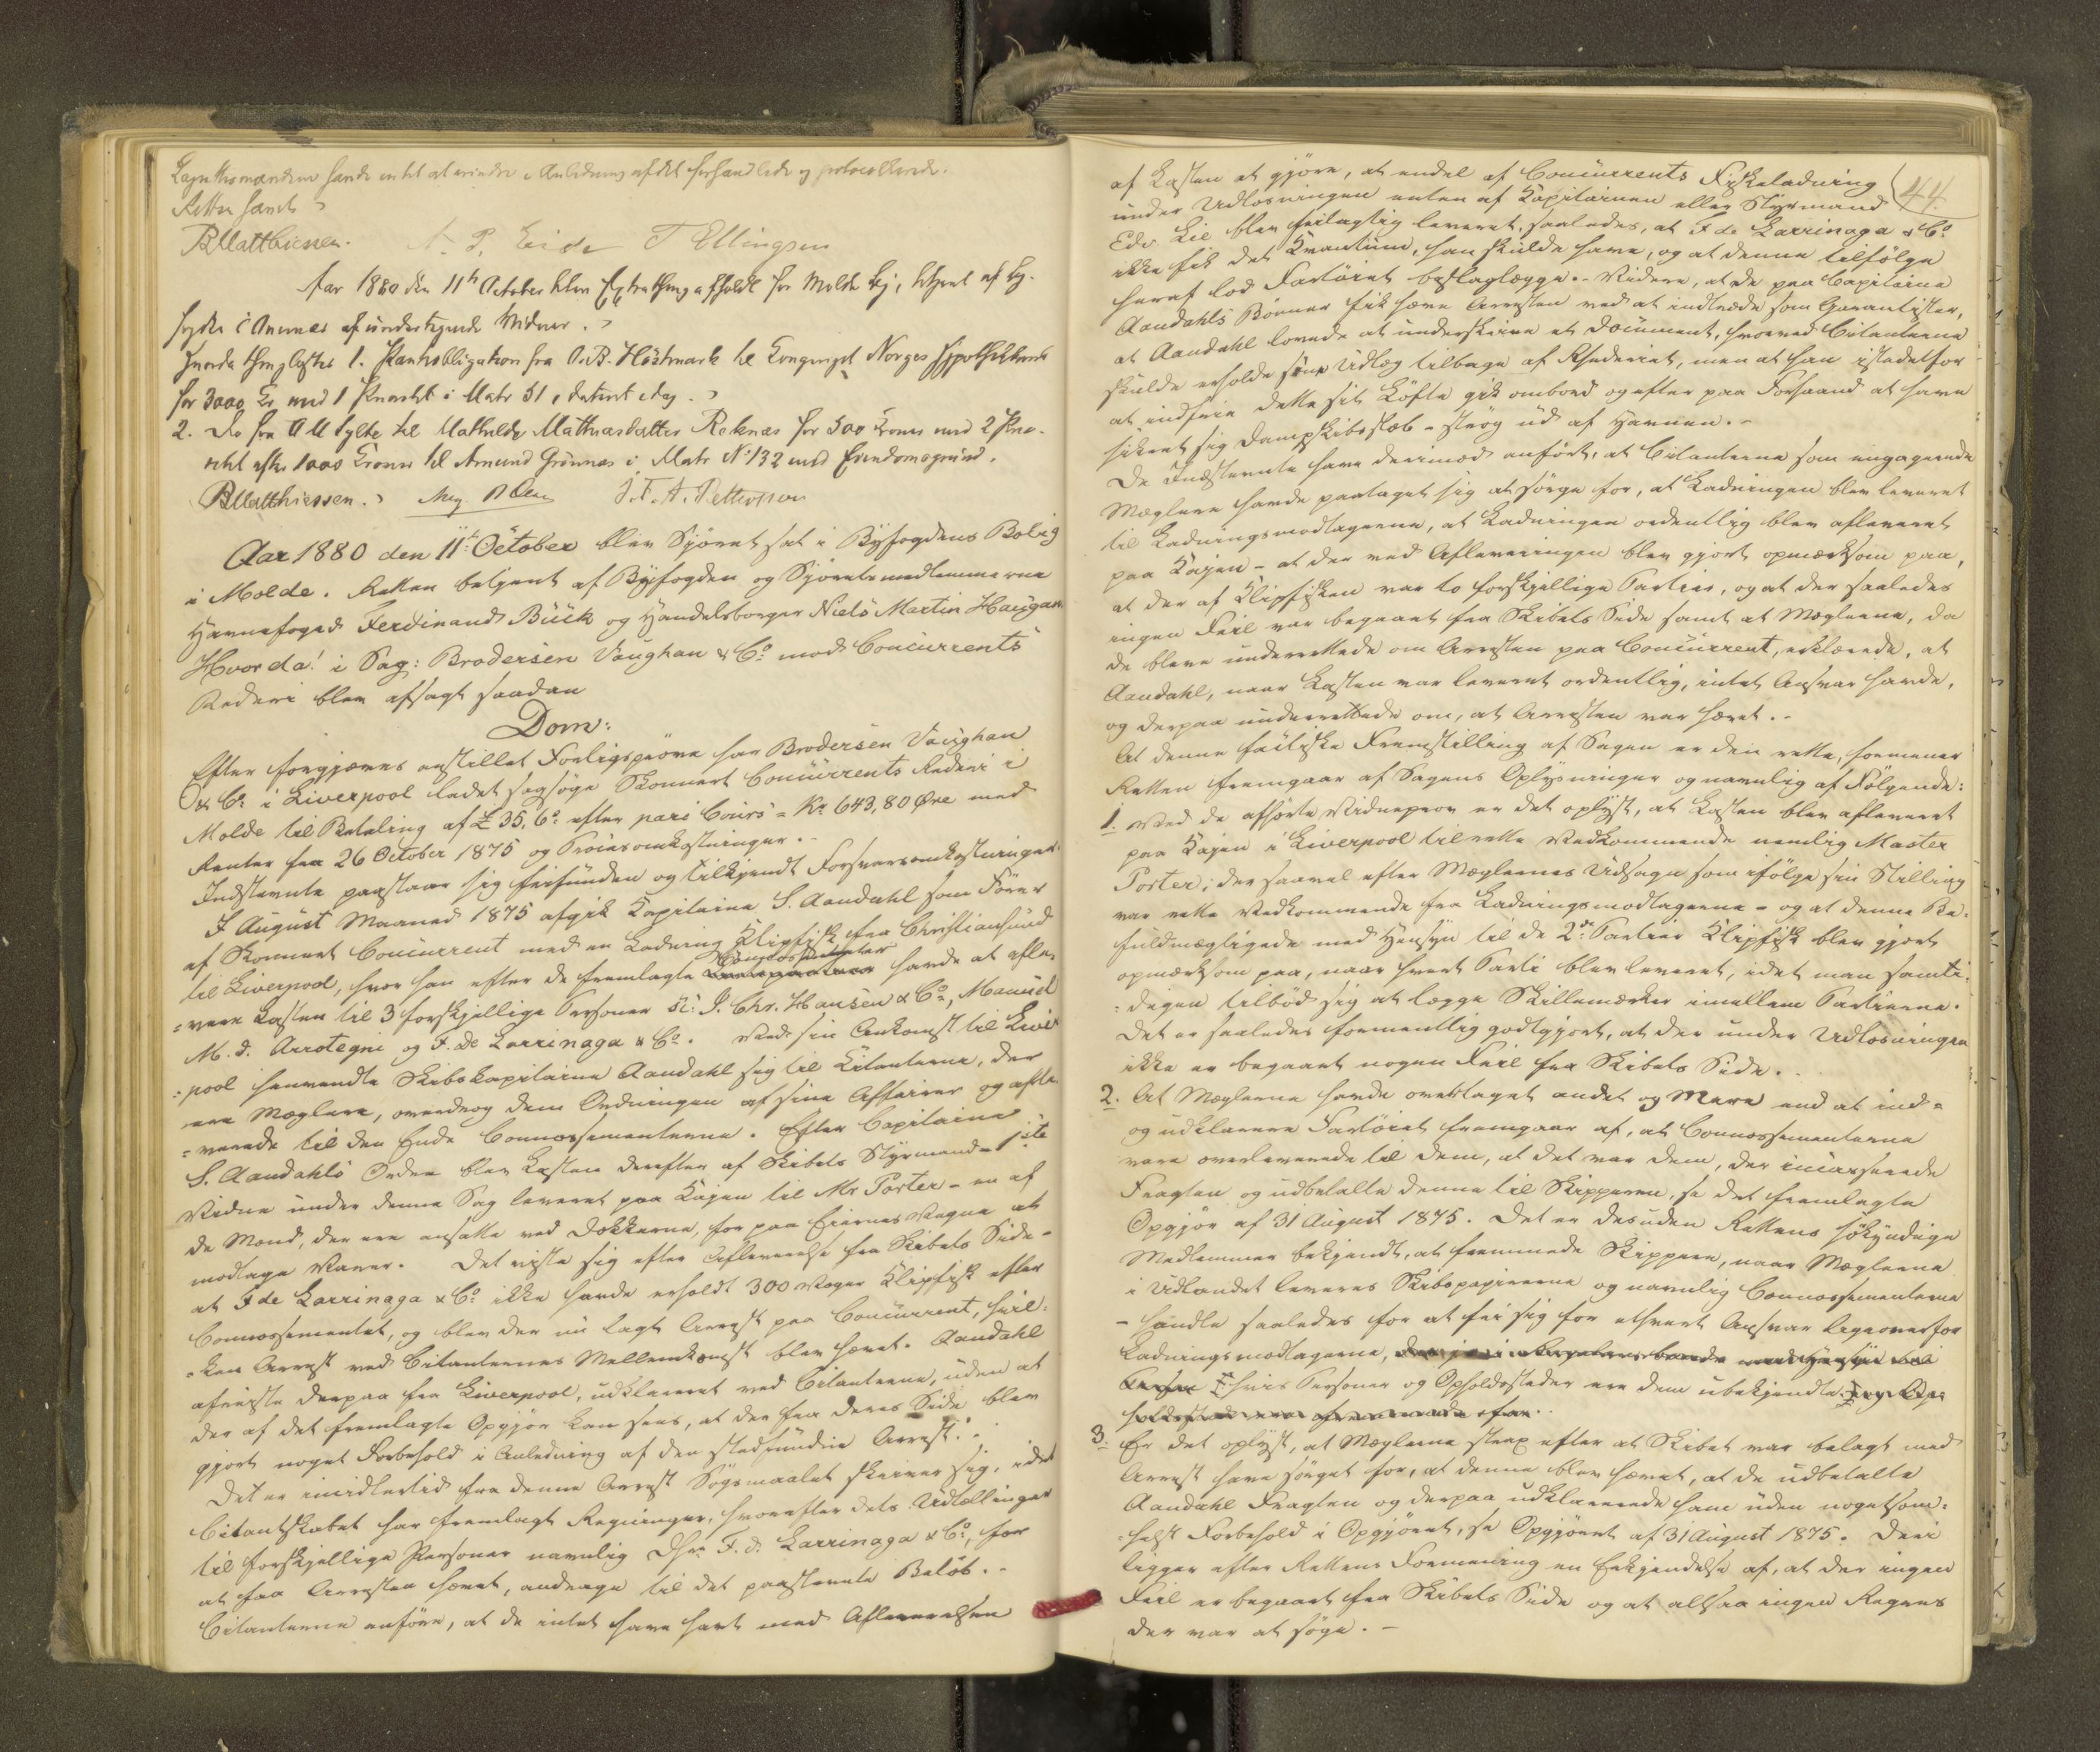 Lagrettesmændene havde intet at erindre i Anledning af det forhandlede og protocollerede.
Retten hævet
BMatthiessen. N. P. Eide T Ellingsen
Aar 1880 den 11te October blev Extrathing afholdt for Molde By, betjent af By-
fogden i Overvær af undertegnede Vidner.
Hvorda thinglæstes 1. Pantobligation fra O. B. Höstmark til Kongeriget Norges Hypothekbank
for 3000 Kr med 1 Prioritet i Matr 51, dateret idag.
2. Do fra A M Sylte til Mathilde Mathiasdatter Reknæs for 500 Kroner med 2 Prio-
ritet efter 1000 Kroner til Amund Grönnæs i Matr No 132 med Eiendomsgrund.
BMatthiessen. J. F. A. Petterson
Aar 1880 den 11te October blev Sjöret sat i Byfogdens Bolig
i Molde. Retten betjent af Byfogden og Sjöretsmedlemmerne
Havnefoged Ferdinand Bück og Handelsborger Niels Martin Haugan.
Hvorda! i Sag: Brodersen Vaughan & Co mod Concurrents
Rederi blev afsagt saadan
Dom:
Efter forgjæves anstillet Forligspröve har Brodersen Vaughan
& Co i Liverpool ladet sagsöge Skonnert Concurrents Rederi i
Molde til Betaling af £ 35, 6s efter pari Cours = Kr. 643,80 Öre med
Renter fra 26 October 1875 og Procesomkostninger.
Indstevnte paastaar sig frifunden og tilkjendt Forsvarsomkostninger.
I August Maaned 1875 afgik Kapitaine S. Aandahl som Förer
af Skonnert Concurrent med en Ladning Klipfisk fra Christiansund
til Liverpool, hvor han efter de fremlagte Connossementer havde at afle-
=vere Lasten til 3 forskjellige Personer sc: J. Chr. Hansen & Co, Manuel
M. d. Arrotegni og F. De Larrinaga & Co. Ved sin Ankomst til Liver
=pool henvendte Skibskapitaine Aandahl sig til Citanterne, der
ere Mæglere, overdrog dem Ordningen af sine Affairer og afle-
=verede til den Ende Connossementerne. Efter Capitaine
S. Aandahls Ordre blev Lasten derefter af Skibets Styrmand - 1ste
Vidne under denne Sag leveret paa Kajen til Mr Porter - en af
de Mænd, der ere ansatte ved Dokkerne, for paa Eiernes Vegne at
modtage Varer. Det viste sig efter Afleverelse fra Skibets Side -
at F de Larrinaga & Co ikke havde erholdt 300 Voger Klipfisk efter
Connossementet, og blev der nu lagt Arrest paa Concurrent, hvil-
=ken Arrest ved Citanternes Mellemkomst blev hævet. Aandahl
afreiste derpaa fra Liverpool, udklareret ved Citanterne, uden at
der af det fremlagte Opgjör kan sees, at der fra deres Side blev
gjort noget Forbehold i Anledning af den stedfundne Arrest.
Det er imidlertid fra denne Arrest Sögsmaalet skriver sig, idet
Citantskabet har fremlagt Regninger, hvorefter dets Udtællinger
til forskjellige Personer navnlig Dhrr F. d. Larrinaga & Co, for
at faa Arresten hævet, andrage til det paastevnte Belöb.
Citanterne anföre, at de intet have havt med Afleverelsen
44
af Lasten at gjöre, at endel af Concurrents Fiskeladning
under Udlosningen enten af Kapitainen eller Styrmand
Edv. Lie blev feilagtig leveret, saaledes, at F de Larrinaga & Co
ikke fik det Kvantum, han skulde have, og at denne tilfölge
heraf lod Fartöiet beslaglægge. - Videre, at de paa Capitaine
Aandahls Bönner fik hæve Arresten ved at indtræde som Garantister,
at Aandahl lovede at underskrive et Document, hvorved Citanterne
skulde erholde sine Udlæg tilbage af Rhederiet, men at han istedetfor
at indfrie dette sit Löfte gik ombord og efter paa Forhaand at have
sikret sig Dampskibsslæb - strög ud af Havnen. -
De Indstevnte have derimod anfört, at Citanterne som engagerede
Mæglere havde paataget sig at sörge for, at Ladningen blev leveret
til Ladningsmodtagerne, at Ladningen ordentlig blev afleveret
paa Kajen - at der ved Afleveringen blev gjort opmærksom paa,
at der af Klipfisken var to forskjellige Partier, og at der saaledes
ingen Feil var begaaet fra Skibets Side samt at Mæglerne, da
de bleve underrettede om Arresten paa Concurrent, erklærede, at
Aandahl, naar Lasten var leveret ordentlig, intet Ansvar havde,
og derpaa underrettede om, at Arresten var hævet. -
At denne factiske Fremstilling af Sagen er den rette, formener
Retten fremgaar af Sagens Oplysninger og navnlig af Fölgende:
1. Ved de afhörte Vidneprov er det oplyst, at Lasten blev afleveret
paa Kajen i Liverpool til rette Vedkommende nemlig Master
Porter; der saavel efter Mæglernes Udsagn som ifölge sin Stilling
var rette Vedkommende fra Ladningsmodtagerne - og at denne Be-
fuldmægtigede med Hensyn til de 2de Partier Klipfisk blev gjort
opmærksom paa, naar hvert Parti blev leveret, idet man samti-
=digen tilböd sig at lægge Skillemærker imellem Partierne.
Det er saaledes formentlig godtgjort, at der under Udlosningen
ikke er begaaet nogen Feil fra Skibets Side.
2. At Mæglerne havde overtaget andet og mere end at ind=
og udklarere Fartöiet fremgaar af, at Connossementerne
vare overleverede til dem, at det var dem, der incasserede
Fragten og udbetalte denne til Skipperen, se det fremlagte
Opgjör af 31 August 1875. Det er desuden Rettens sökyndige
Medlemmer bekjendt, at fremmede Skippere, naar Mæglerne
i Udlandet leveres Skibspapirerne og navnlig Connossementerne
- handle saaledes for at fri sig for ethvert Ansvar ligeoverfor
Ladningsmodtagerne,
hvis Personer og Opholdssteder ere dem ubekjendte.
3. Er det oplyst, at Mæglerne strax efter at Skibet var belagt med
Arrest have sörget for, at denne blev hævet, at de udbetalte
Aandahl Fragten og derpaa udklarerede ham uden nogetsom-
=helst Forbehold i Opgjöret, se Opgjöret af 31 August 1875. Deri
ligger efter Rettens Formening en Erkjendelse af, at der ingen
Feil er begaaet fra Skibets Side og at altsaa ingen Regres
der var at söge. -